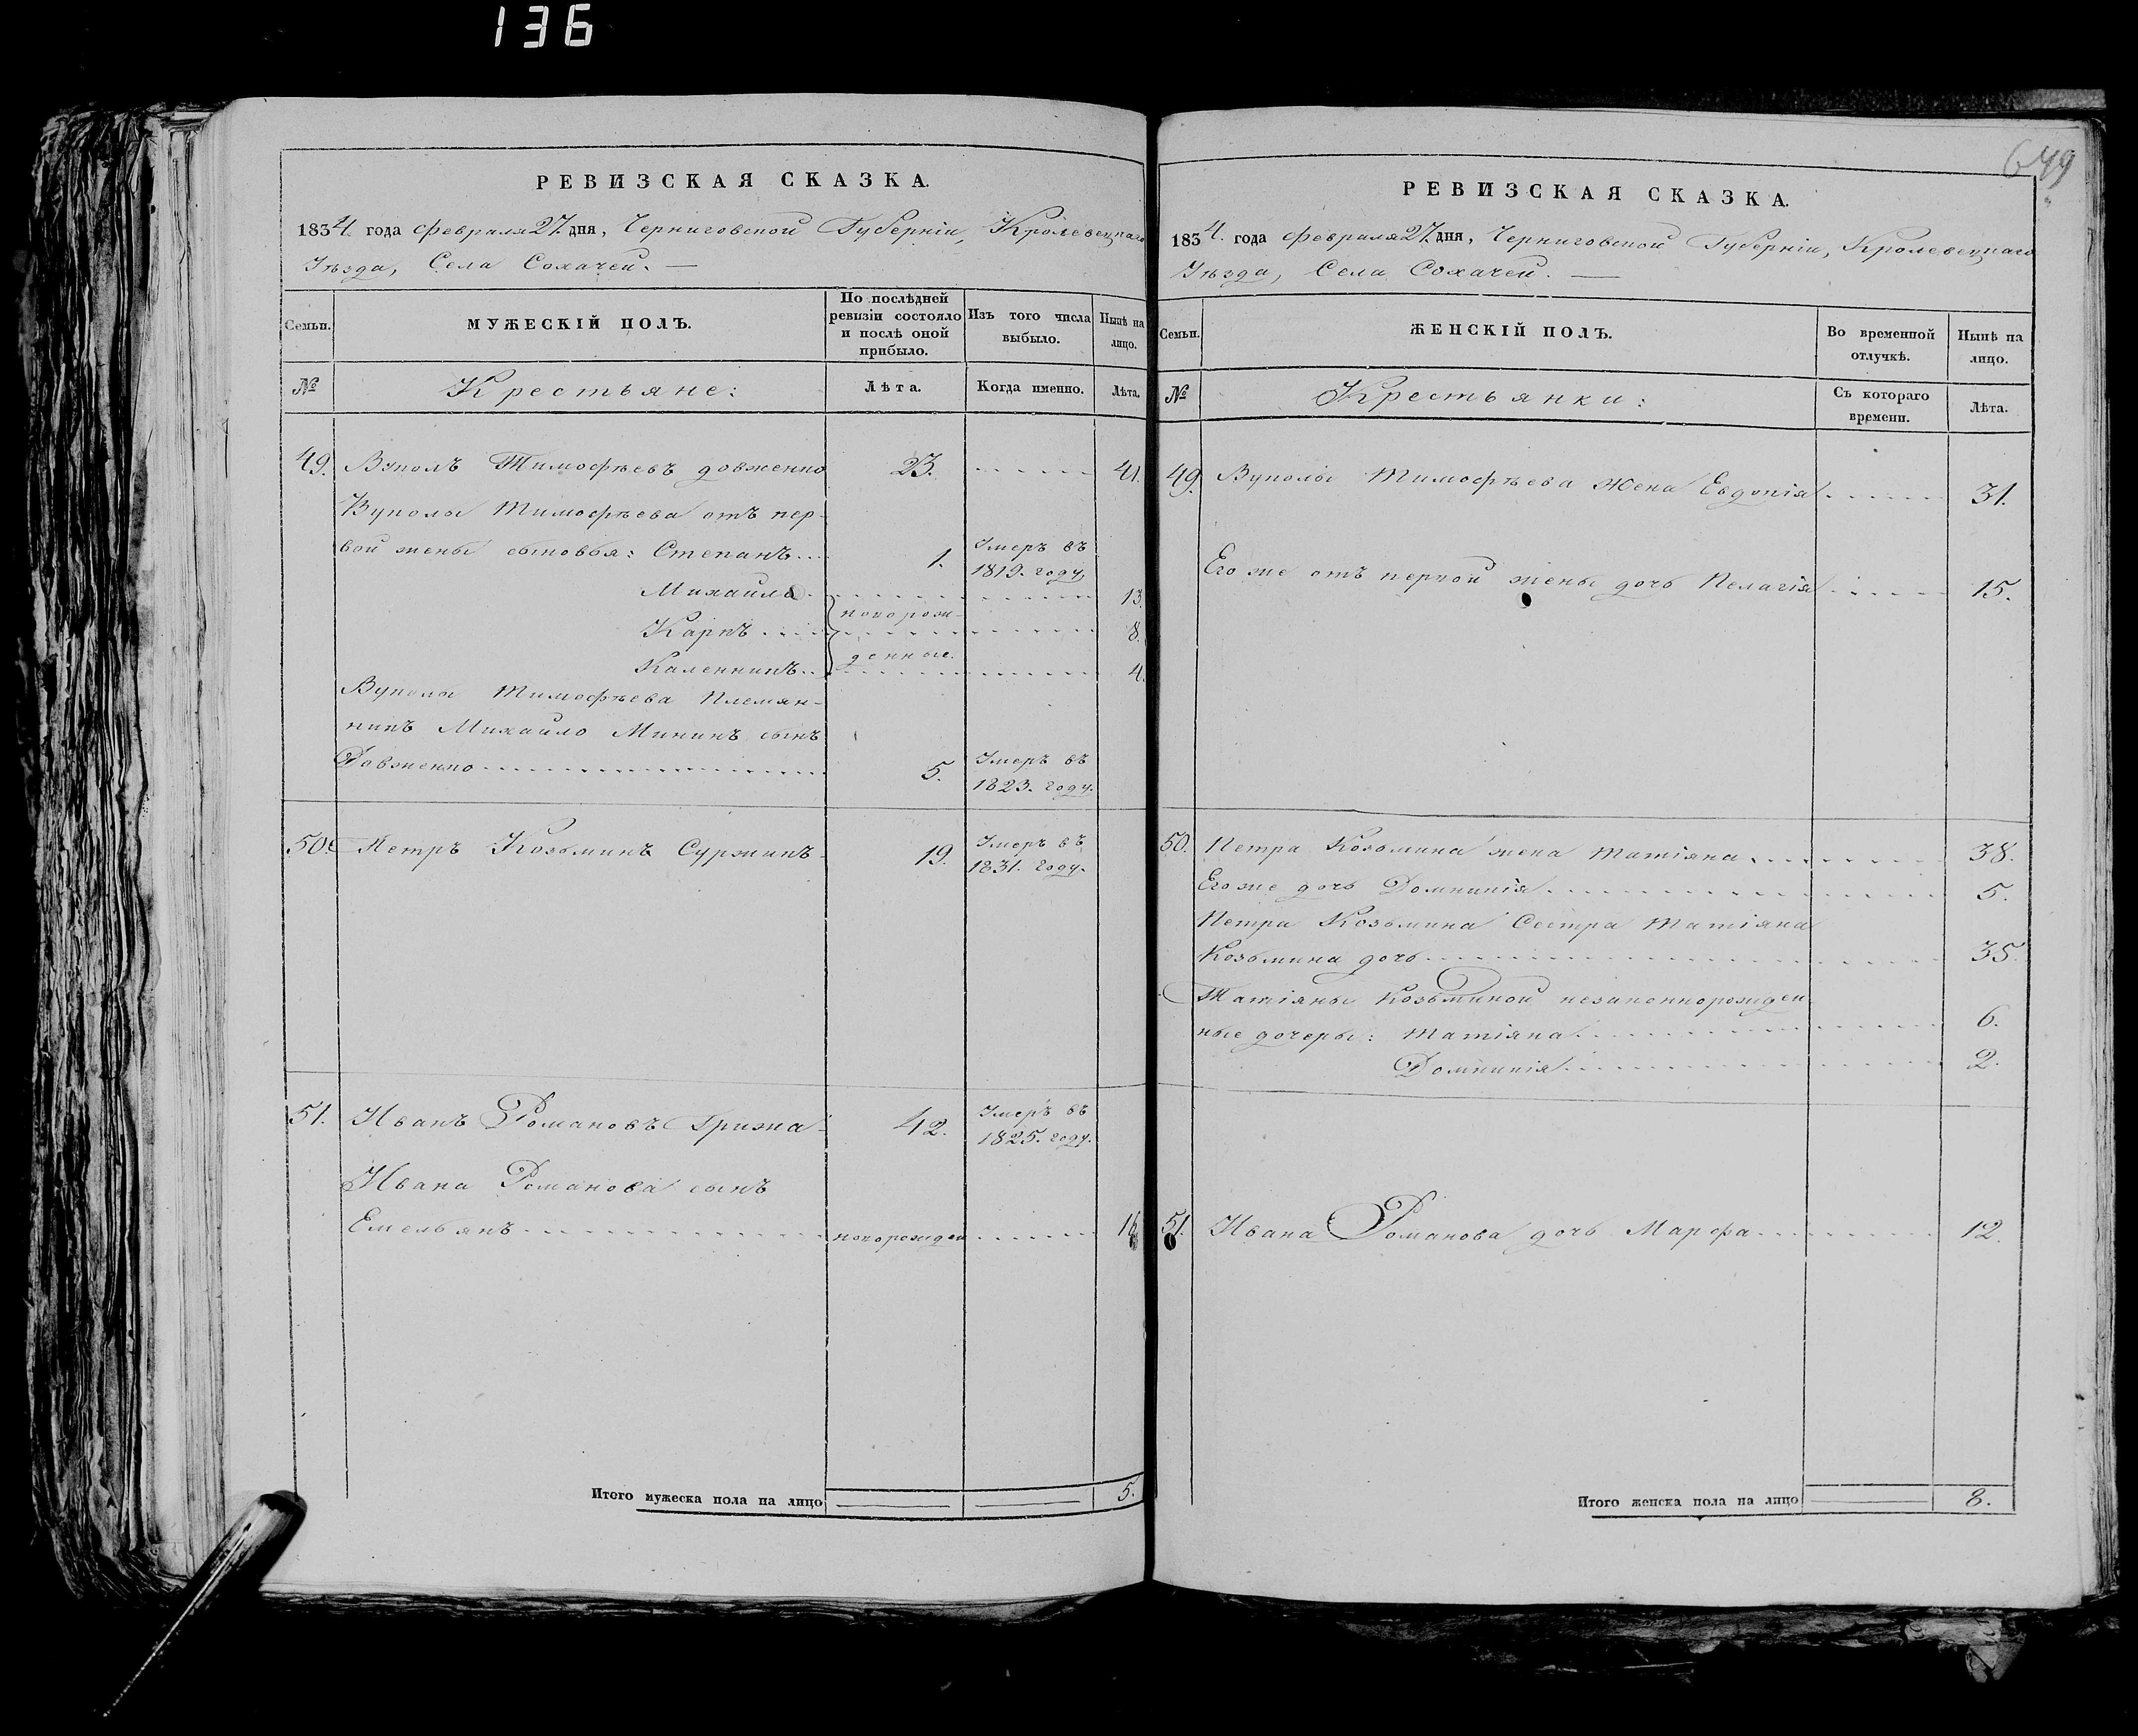 136
649
РЕВИЗСКАЯ СКАЗКА.
1834. года Февраля 27. дня, Черниговской Губерніи, Кролевецкаго
Уѣзда, Села Сохачей. —
Семьи.
МУЖЕСКІЙ ПОЛЪ.
По послѣдней ревизіи состояло и послѣ оной прибыло.
Изъ того числа выбыло.
Нынѣ на лицо.
№
Крестьяне:
Лѣта.
Когда именно.
Лѣта.
49. Вуколъ Тимофѣевъ Довженко 23. 41.
Вуколы Тимофѣева отъ пер-
вой жены сыновья: Степанъ 1. Умеръ въ 1819. году,
Михаило 13.
новорож-
Карпъ 8.
денные.
Каленникъ 4.
Вуколы Тимофѣева Племян-
никъ Михайло Мининъ сынъ
Довженко 5. Умеръ въ 1823. году.
50. Петръ Козьминъ Суржикъ 19. Умеръ въ 1831. году.
51. Иванъ Романовъ Грижа 42. Умеръ въ 1825. году.
Ивана Романова сынъ
Емельянъ новорожден 16
Итого мужеска пола на лицо 5.
РЕВИЗСКАЯ СКАЗКА.
1834. года Февраля 27. дня, Черниговской Губерніи, Кролевецкаго
Уѣзда, Села Сохачей. —
Семьи.
ЖЕНСКІЙ ПОЛЪ.
Во временной отлучкѣ.
Нынѣ на лицо.
№
Крестьянки:
Съ котораго времени.
Лѣта.
49. Вуколы Тимофѣева жена Евдокія 31.
Его же отъ первой жены дочь Пелагія 15.
50. Петра Козьмина жена Татіяна 38.
Его же дочь Домникія 5.
Петра Козьмина Сестра Татіяна
Козьмина дочь 35.
Татіяны Козьминой незаконнорожден
ные дочеры: Татіяна 6.
Домникія 2.
51. Ивана Романова дочь Марфа 12.
Итого женска пола на лицо 8.